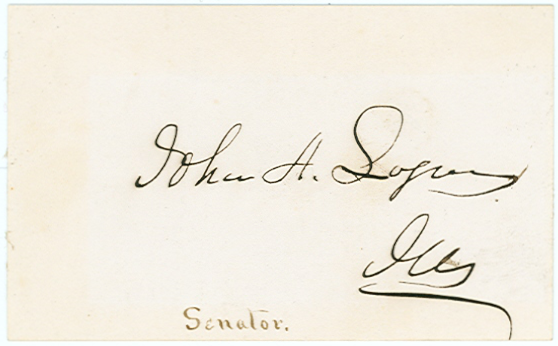 John A. Logan
Ills
Senator.